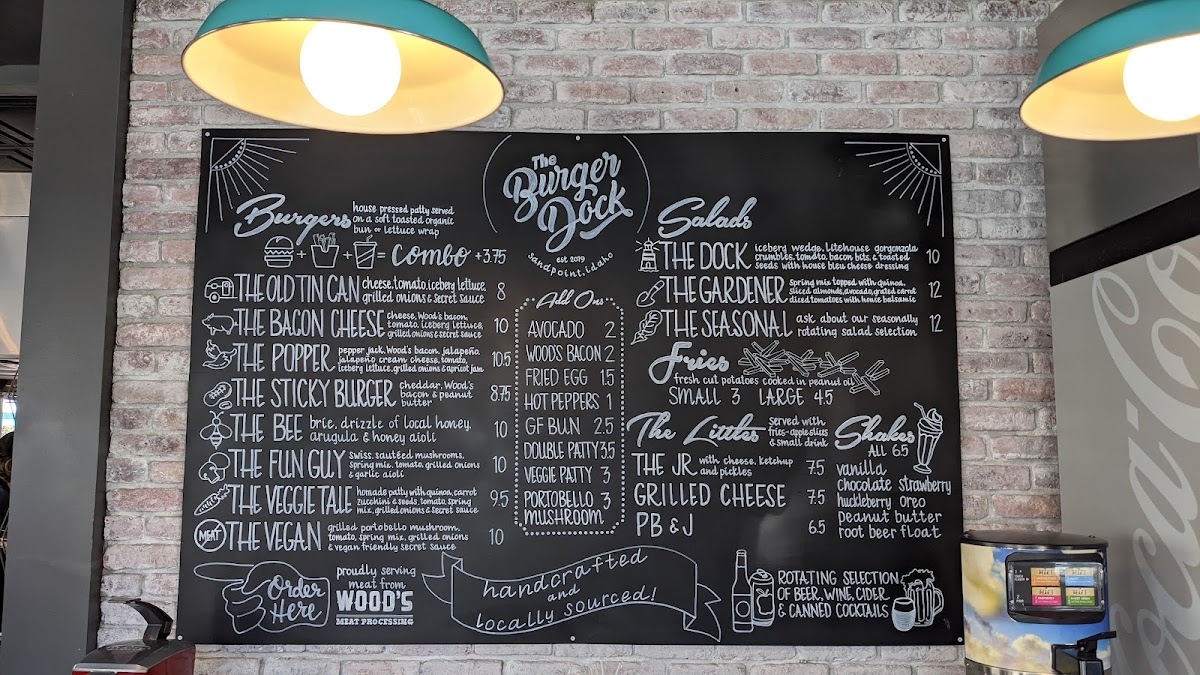 The
Burger
Dock
est. 2019
sandpoint, idaho
Burgers
house pressed patty served
on a soft toasted organic
bun or lettuce wrap
+ + = combo +3.75
THE OLD TIN CAN cheese, tomato, iceberg lettuce, 8
grilled onions & secret sauce
THE BACON CHEESE cheese, Wood's bacon, 10
tomato, iceberg lettuce,
grilled onions & secret sauce
THE POPPER pepper jack, Wood's bacon, jalapeño, 10.5
jalapeño cream cheese, tomato,
iceberg lettuce, grilled onions & apricot jam
THE STICKY BURGER cheddar, Wood's 8.75
bacon & peanut
butter
THE BEE brie, drizzle of local honey, 10
arugula & honey aioli
THE FUN GUY swiss, sautéed mushrooms, 10
spring mix, tomato, grilled onions
& garlic aioli
THE VEGGIE TALE homade patty with quinoa, carrot 9.5
zucchini & seeds, tomato, spring
mix, grilled onions & secret sauce
MEAT THE VEGAN grilled portobello mushroom, 10
tomato, spring mix, grilled onions
& vegan friendly secret sauce
Add Ons
AVOCADO 2
WOOD'S BACON 2
FRIED EGG 1.5
HOT PEPPERS 1
GF BUN 2.5
DOUBLE PATTY 3.5
VEGGIE PATTY 3
PORTOBELLO 3
MUSHROOM
Salads
THE DOCK iceberg wedge, Litehouse gorgonzola 10
crumbles, tomato, bacon bits, & toasted
seeds with house bleu cheese dressing
THE GARDENER spring mix topped with quinoa, 12
sliced almonds, avocado, grated carrot
diced tomatoes with house balsamic
THE SEASONAL ask about our seasonally 12
rotating salad selection
Fries
fresh cut potatoes cooked in peanut oil
SMALL 3 LARGE 4.5
The Littles served with
fries - apple slices
& small drink
THE JR with cheese, ketchup 7.5
and pickles
GRILLED CHEESE 7.5
PB & J 6.5
Shakes
ALL 6.5
vanilla
chocolate strawberry
huckleberry oreo
peanut butter
root beer float
Order
Here
proudly serving
meat from
WOOD'S
MEAT PROCESSING
handcrafted
and
locally sourced!
ROTATING SELECTION
OF BEER, WINE, CIDER
& CANNED COCKTAILS